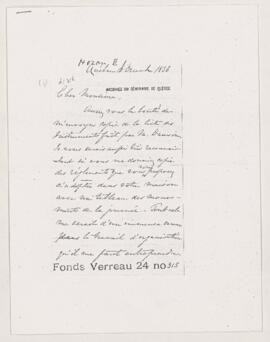 Hozan, E
Québec 8 1836
ARCHIVES DU SÉMINAIRE DE QUÉBEC
Cher Monsieur,
Auriez vous la bonté de
m'envoyer copie de la liste des
instruments fait par M.
Je vous aurais aussi bien reconnais-
sant si vous me donniez copie
des règlements que vous
d'adopter dans votre maison
avec un tableau des mouve-
ments de la journée. Tout cela
me serait d'un immense
dans le travail d'organisation
qu'il me faut entreprendre
Fonds Verreau 24 no 315